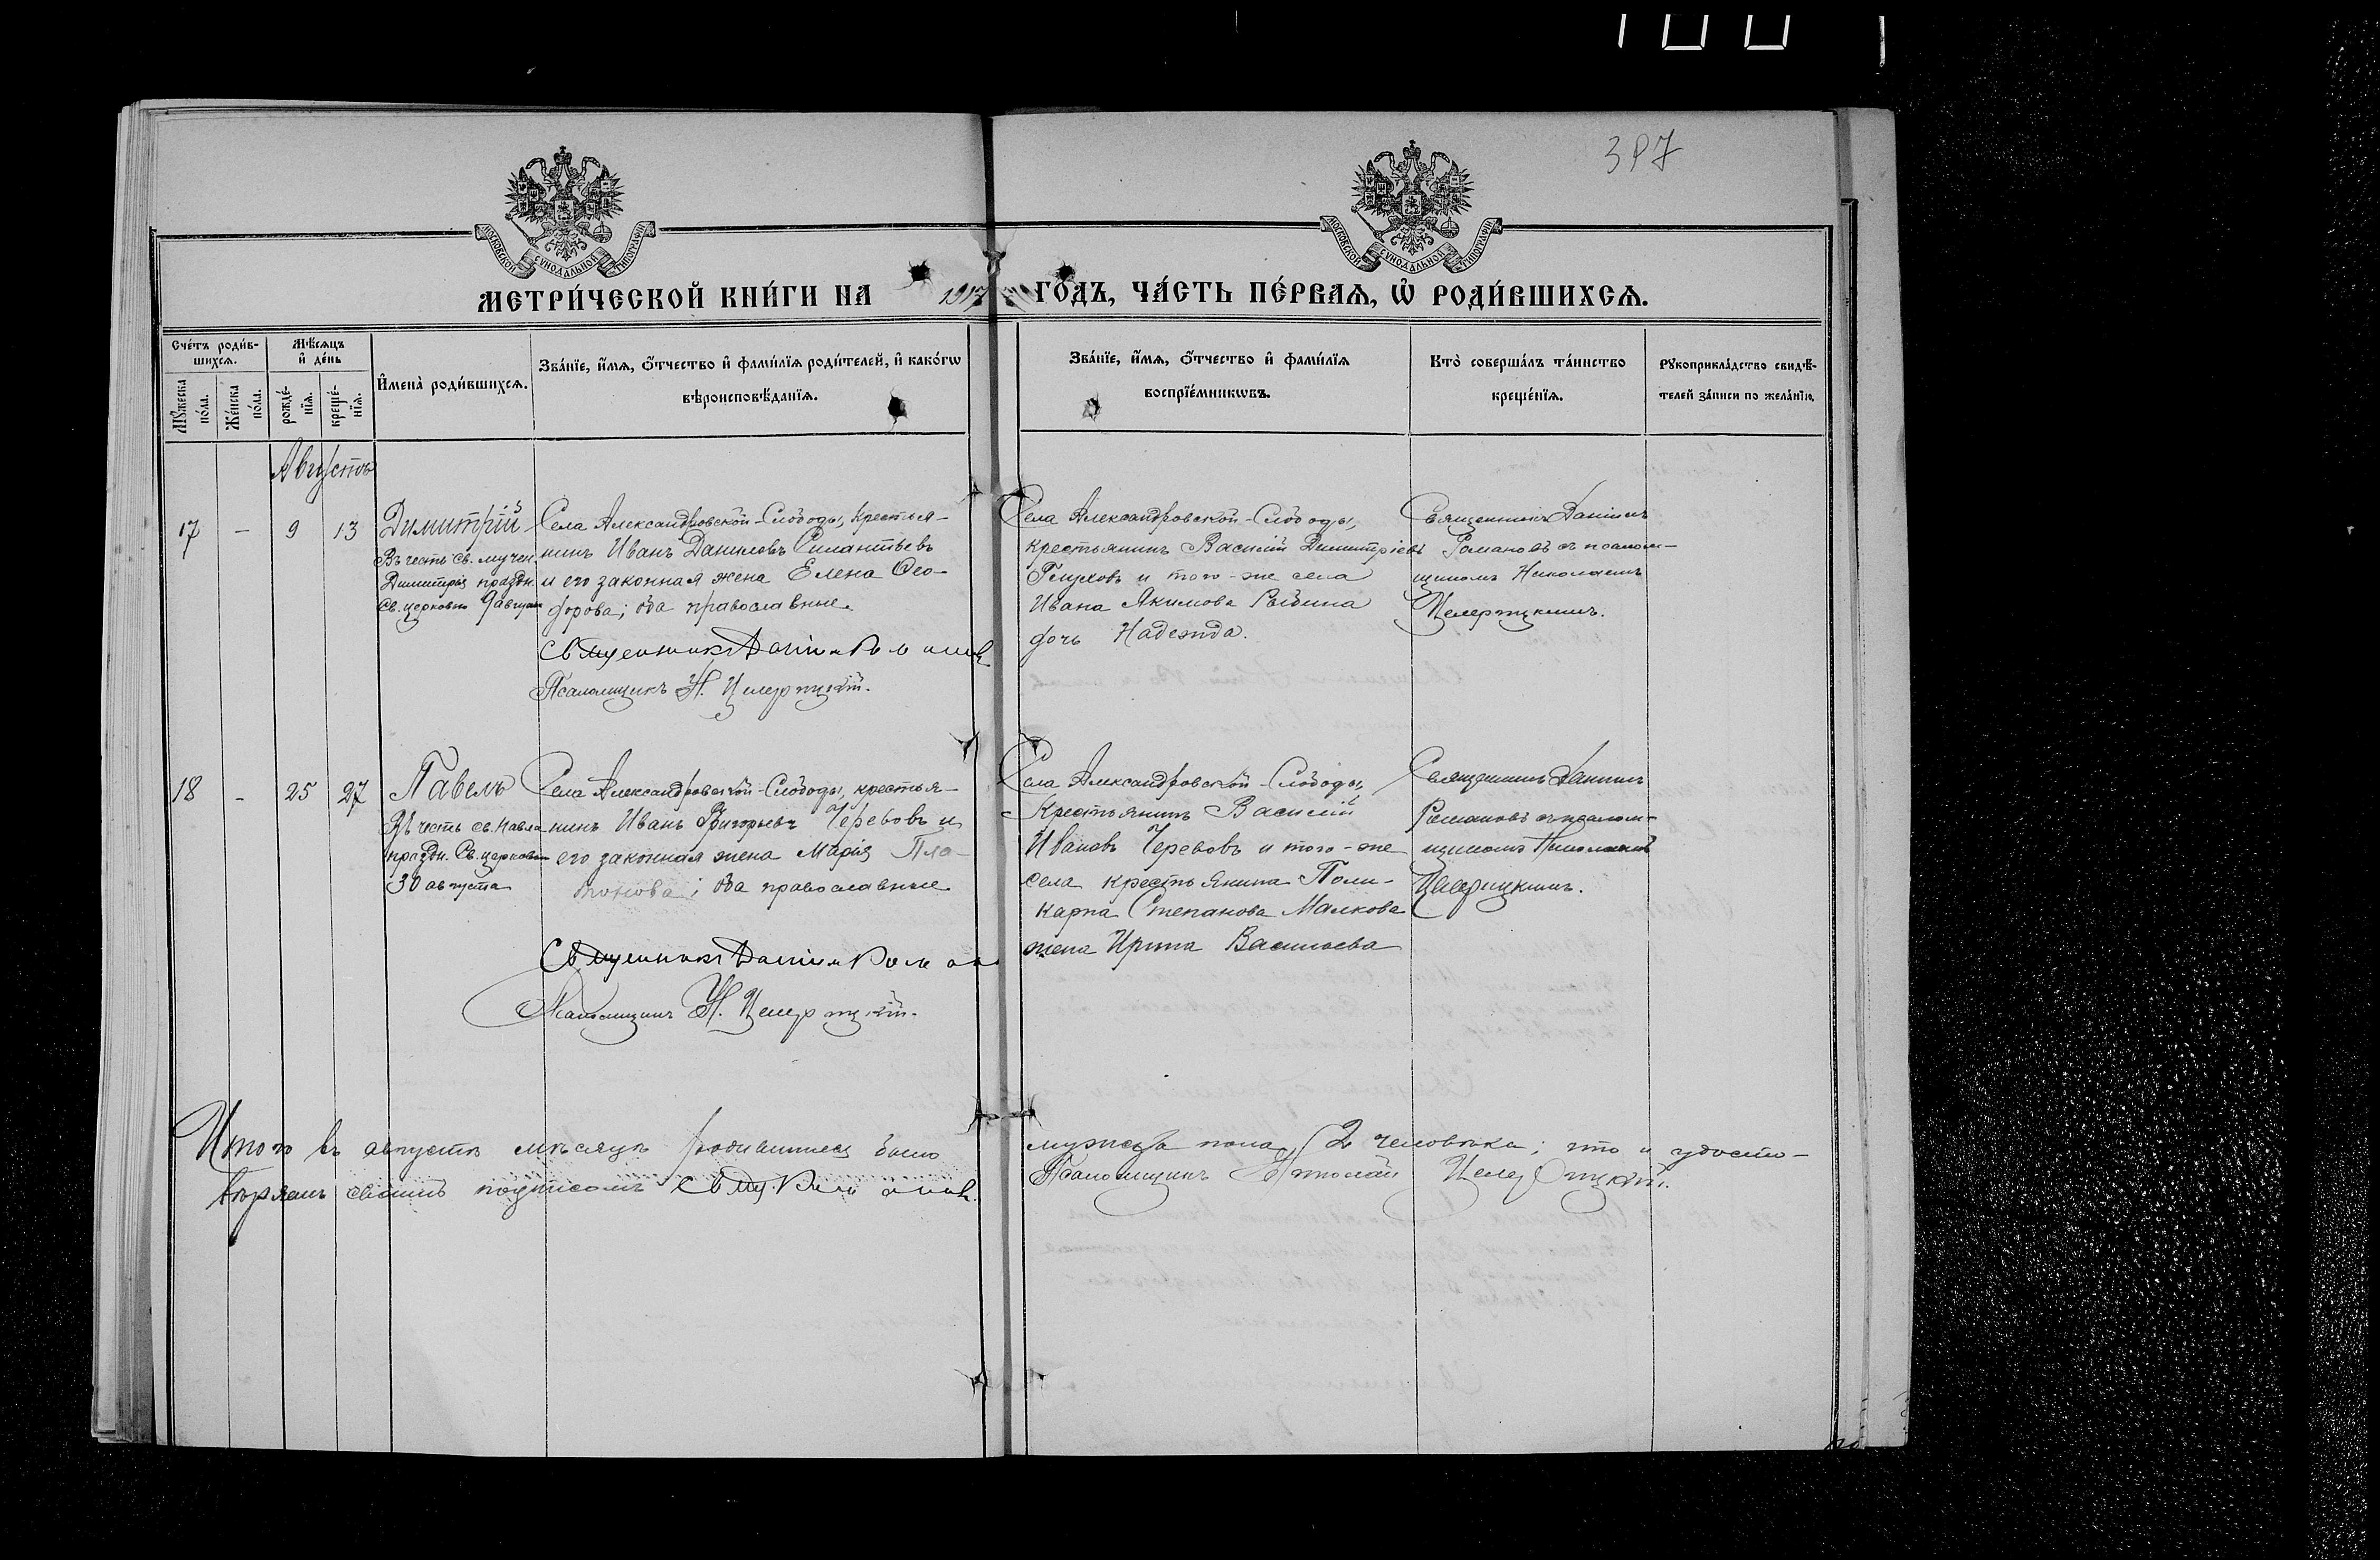 397
МОСКОВСКОЙ СУНОДАЛЬНОЙ ТИПОГРАФІИ
МОСКОВСКОЙ СУНОДАЛЬНОЙ ТИПОГРАФІИ
МЕТРИ́ЧЕСКОЙ КНИ́ГИ НА 1917 ГО́ДЪ, ЧА́СТЬ ПЕ́РВАѦ, Ѽ РОДИ́ВШИХСѦ.
Счетъ роди́в-
шихсѧ.
Мѣ́сѧцъ
и҆ де́нь
Мꙋ́жеска
по́ла.
Же́нска
по́ла.
рожде́-
нїѧ.
креще́-
нїѧ.
И҆мена̀ роди́вшихсѧ.
Зва́нїе, и҆́мѧ, ѻ҆́тчество и҆ фами́лїѧ роди́телей, и҆ како́гѡ
вѣроисповѣ́данїѧ.
Зва́нїе, и҆́мѧ, ѻ҆́тчество и҆ фами́лїѧ
воспрїе́мникѡвъ.
Кто̀ соверша́лъ та́инство
креще́нїѧ.
Рꙋкоприкла́дство свидѣ́-
телей за́писи по жела́нїю.
Августъ
17 - 9 13
Димитрій
Въ честь св. мучен.
Димитрія праздн.
Св. церковію 9 августа
Села Александровской-Слободы, крестья-
нинъ Иванъ Даниловъ Силантьевъ
и его законная жена Елена Ѳео-
дорова; оба православные.
Священникъ Даніилъ Романовъ
Псаломщикъ Н. Целерицкій.
Села Александровской-Слободы,
крестьянинъ Василій Димитріевъ
Глуховъ и того-же села
Ивана Якимова Рыбина
дочь Надежда.
Священникъ Даніилъ
Романовъ съ псалом-
щикомъ Николаемъ
Целерицкимъ.
18 - 25 27
Павелъ
Въ честь св. Павла
праздн. Св. церковію
30 августа
Села Александровской-Слободы, крестья-
нинъ Иванъ Григорьевъ Черевовъ и
его законная жена Марія Пла-
тонова; оба православные
Священникъ Даніилъ Романовъ
Псаломщикъ Н. Целерицкій.
Села Александровской-Слободы,
Крестьянинъ Василій
Ивановъ Черевовъ и того-же
села крестьянина Поли-
карпа Степанова Малкова
жена Ирина Васильева
Священникъ Даніилъ
Романовъ съ псалом-
щикомъ Николаемъ
Целерицкимъ.
Итого въ августѣ мѣсяцѣ родившихся было мужеска пола 2 человѣка; что и удосто-
вѣряемъ своимъ подписомъ Свящ. Романовъ. Псаломщикъ Николай Целерицкій.